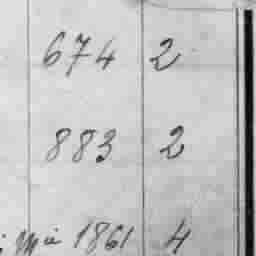 674 2
883 2
1861 4